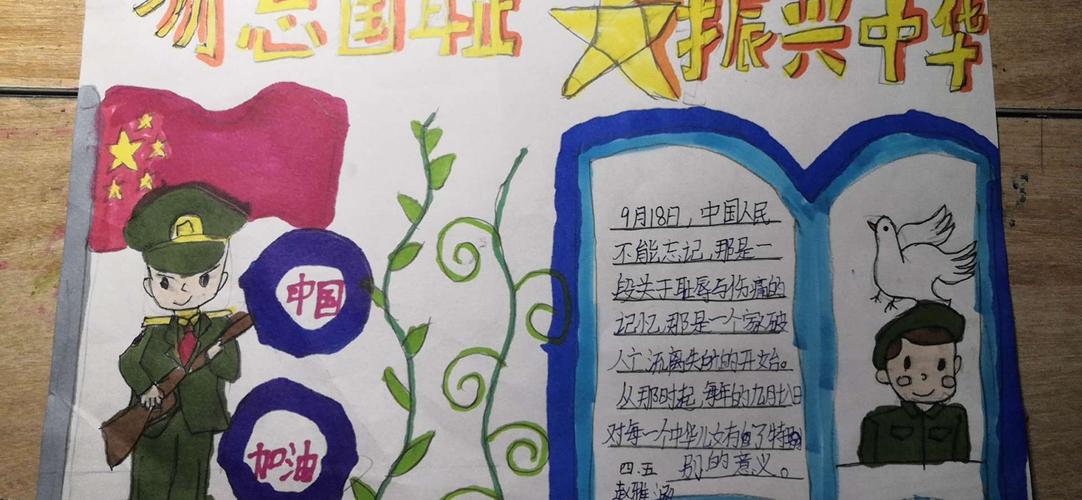 勿忘国耻 振兴中华
中国
加油
9月18日，中国人民
不能忘记，那是一
段关于耻辱与伤痛的
记忆，那是一个家破
人亡流离失所的开始。
从那时起，每年的九月十八日
对每一个中华儿女有了特
别的意义。
四.五
赵雅涵